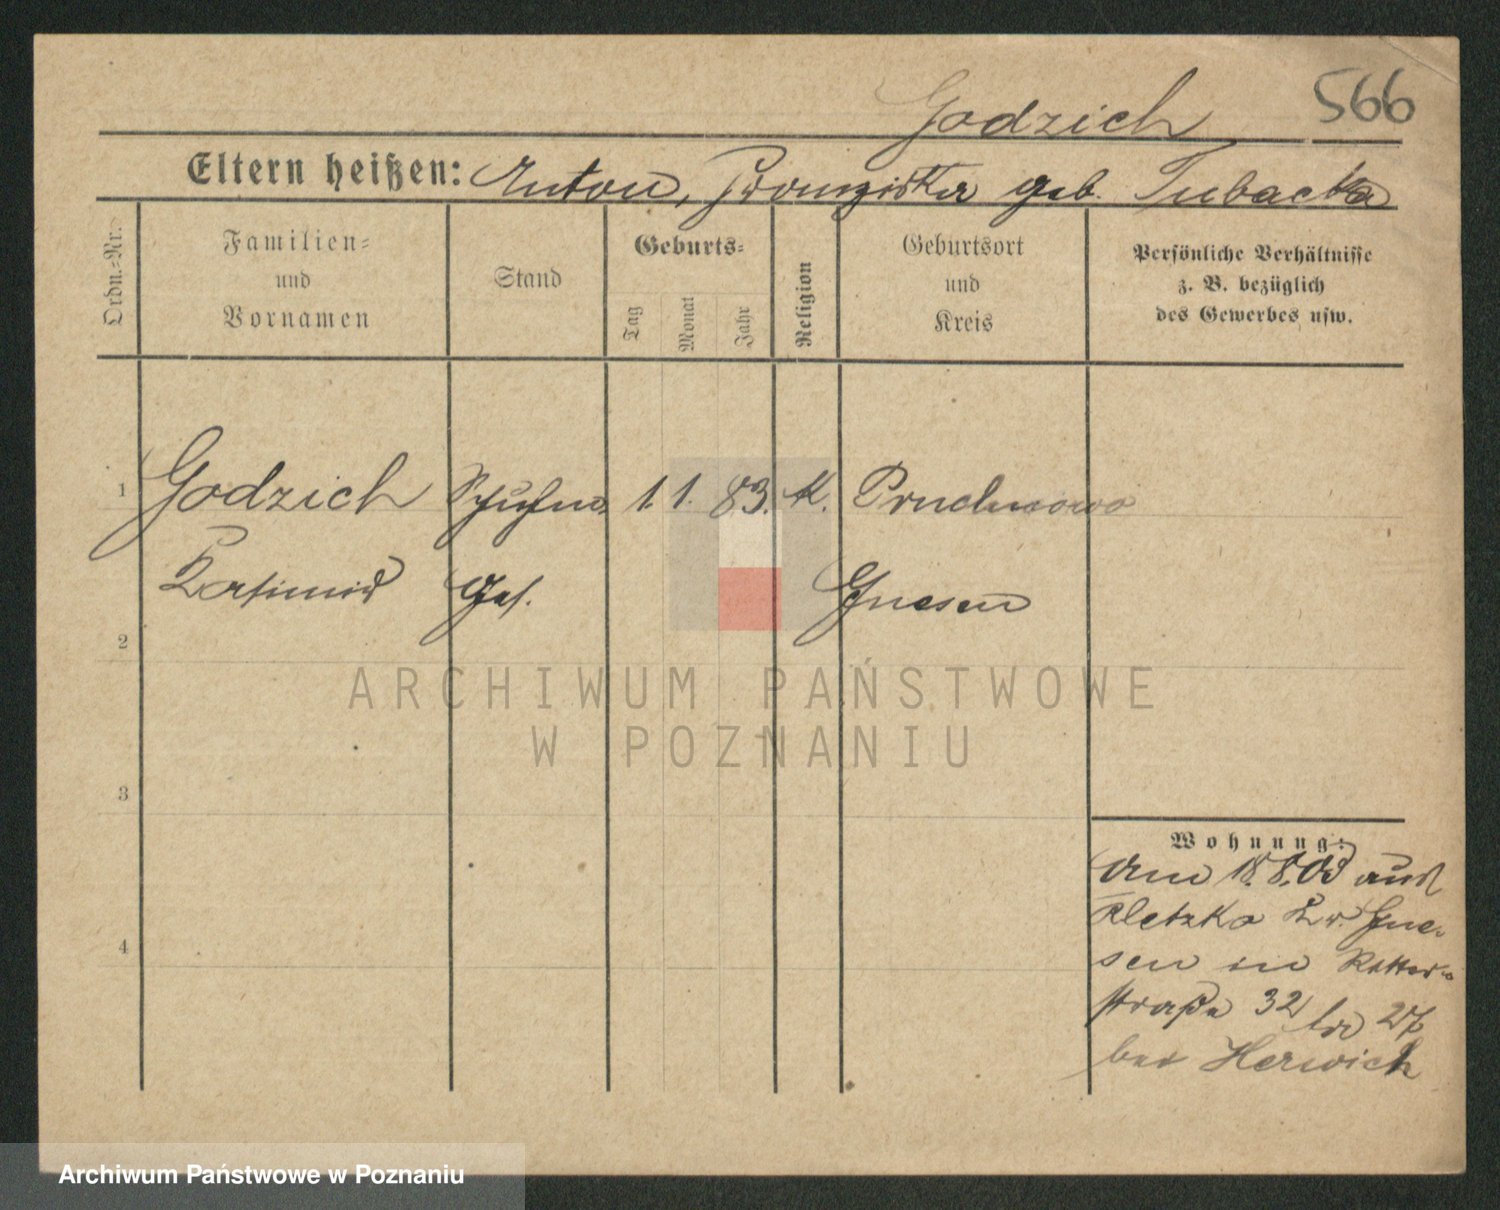 566
Godzich
Eltern heißen: Anton, Franziska geb. Tubacka
Ordn.-Nr.
Familien-
und
Vornamen
Stand
Geburts-
Tag
Monat
Jahr
Religion
Geburtsort
und
Kreis
Persönliche Verhältnisse
z. B. bezüglich
des Gewerbes usw.
1 Godzich Schuhm. 1. 1. 83. K. Pruchnowo
Kasimir Ges. Gnesen
2
ARCHIWUM PAŃSTWOWE
W POZNANIU
3
4
Wohnung:
Am 18.8.03 aus
Kletzko Kr. Gne-
sen in Ritter-
straße 32
bei Herwich
Archiwum Państwowe w Poznaniu